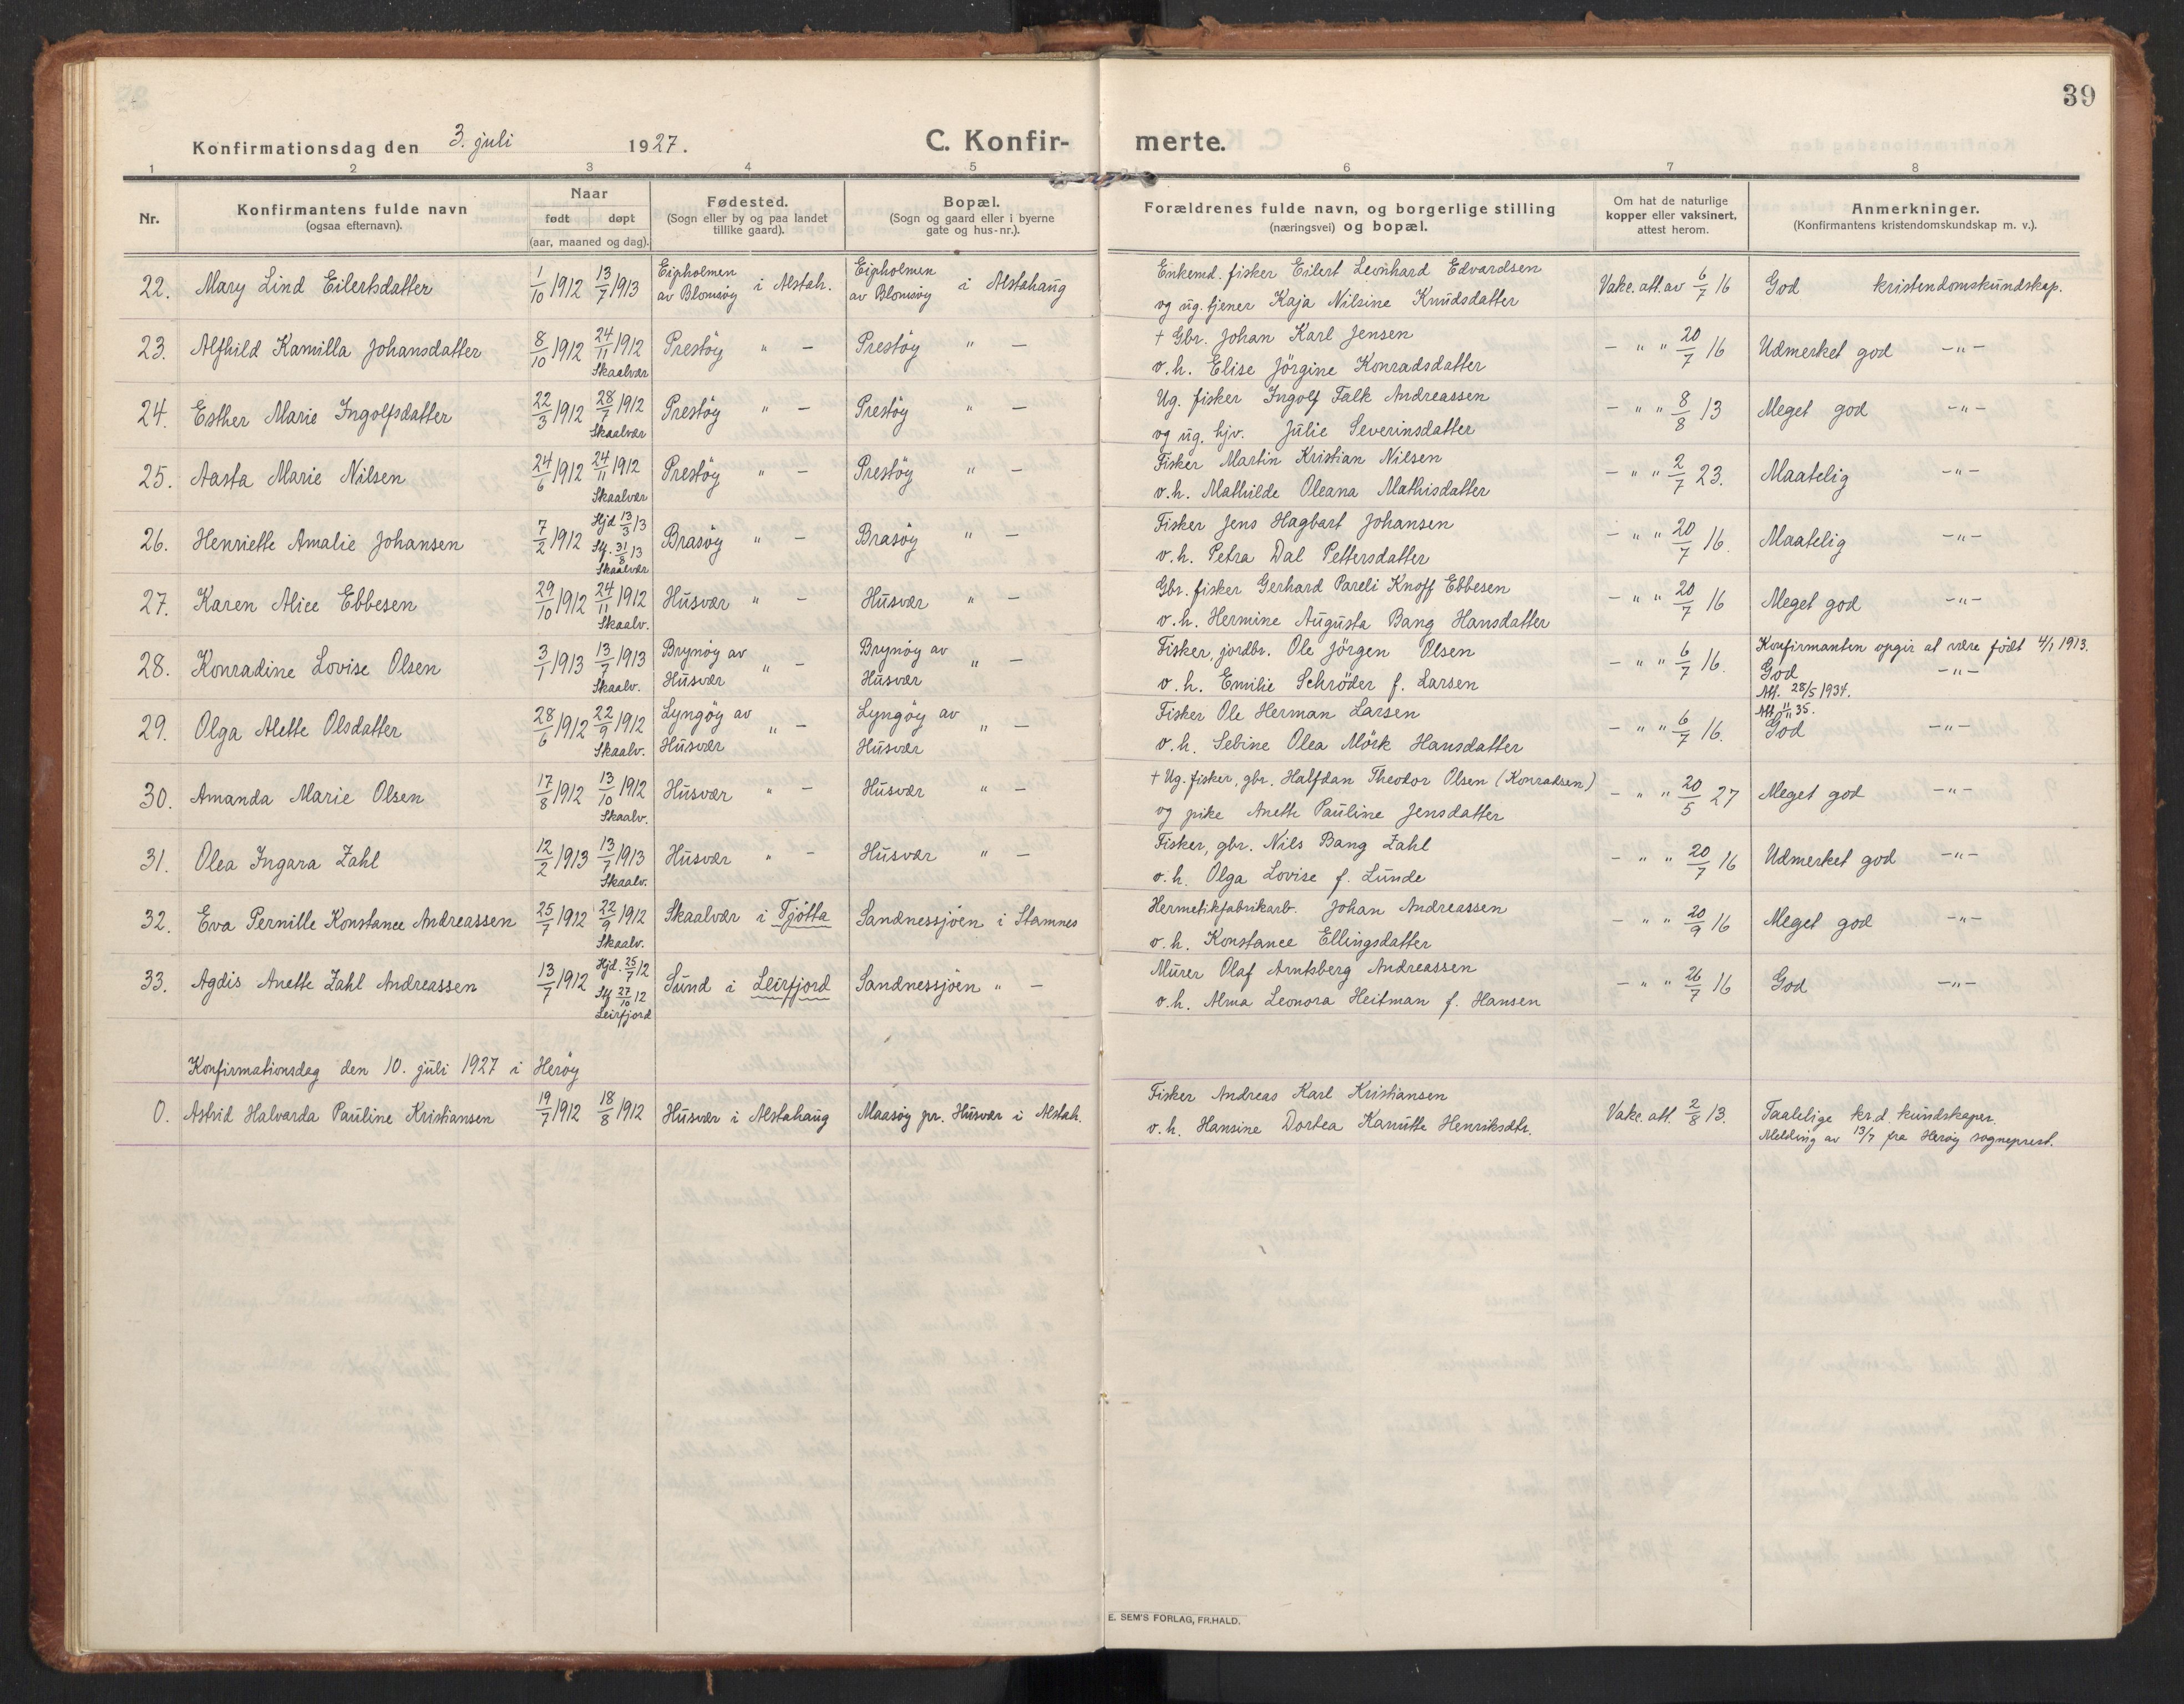 39
Konfirmationsdag den 3. juli 1927. C. Konfirmerte.
1 2 3 4 5 6 7 8
Nr.
Konfirmantens fulde navn
(ogsaa efternavn).
Naar
født døpt
(aar, maaned og dag).
Fødested.
(Sogn eller by og paa landet
tillike gaard).
Bopæl.
(Sogn og gaard eller i byerne
gate og hus-nr.).
Forældrenes fulde navn, og borgerlige stilling
(næringsvei) og bopæl.
Om hat de naturlige
kopper eller vaksinert,
attest herom.
Anmerkninger.
(Konfirmantens kristendomskundskap m. v.).
22. Mary Lind Eilertsdatter 1/10 1912 13/7 1913 Eipholmen av Blomsöy i Alstah. Eipholmen av Blomsöy i Alstahaug Enkemd. fisker Eilert Leonhard Edvardsen
og ug. tjener Kaja Nilsine Knudsdatter Vakc. att. av 6/7 16 God kristendomskundskap.
23. Alfhild Kamilla Johansdatter 8/10 1912 24/11 1912 Skaalvær Prestöy " – Prestöy " – + Gbr. Johan Karl Jensen
o. h. Elise Jörgine Konradsdatter – " " 20/7 16 Udmerket god –"–
24. Esther Marie Ingolfsdatter 22/3 1912 28/7 1912 Skaalvær Prestöy " – Prestöy " – Ug. fisker Ingolf Falk Andreassen
og ug. hjv. Julie Severinsdatter – " " 8/8 13 Meget god –"–
25. Aasta Marie Nilsen 24/6 1912 24/11 1912 Skaalvær Prestöy " – Prestöy " – Fisker Martin Kristian Nilsen
o. h. Mathilde Oleana Mathisdatter – " " 2/7 23. Maatelig –"–
26. Henriette Amalie Johansen 7/2 1912 Hjd 13/3 13 Stf. 31/8 13 Skaalvær Brasöy " – Brasöy " – Fisker Jens Hagbart Johansen
o. h. Petra Dal Pettersdatter – " " 20/7 16. Maatelig –"–
27. Karen Alice Ebbesen 29/10 1912 24/11 1912 Skaalv. Husvær " – Husvær " – Gbr. fisker Gerhard Pareli Knoff Ebbesen
o. h. Hermine Augusta Bang Hansdatter – " " 20/7 16 Meget god –"–
28. Konradine Lovise Olsen 3/1 1913 13/7 1913 Skaalv. Brynöy av Husvær " – Brynöy av Husvær " – Fisker, jordbr. Ole Jörgen Olsen
o. h. Emilie Schröder f. Larsen – " " 6/7 16. Konfirmanten opgir at være födt 4/1 1913.
God –"–
Att. 28/5 1934.
29. Olga Alette Olsdatter 28/6 1912 22/9 1912 Skaalv. Lyngöy av Husvær " – Lyngöy av Husvær " – Fisker Ole Herman Larsen
o. h. Sebine Olea Mörk Hansdatter – " " 6/7 16. Att. 11/11 35.
God –"–
30. Amanda Marie Olsen 17/8 1912 13/10 1912 Skaalv. Husvær " – Husvær " – + Ug. fisker, gbr. Halfdan Theodor Olsen (Konradsen)
og pike Anette Pauline Jensdatter – " " 20/5 27 Meget god –"–
31. Olea Ingara Zahl 12/2 1913 13/7 1913 Skaalv. Husvær " – Husvær " – Fisker, gbr. Nils Bang Zahl
o. h. Olga Lovise f. Lunde – " " 20/7 16 Udmerket god –"–
32. Eva Pernille Konstance Andreassen 25/7 1912 22/9 1912 Skaalv. Skaalvær i Tjötta Sandnessjöen i Stamnes Hermetikfabrikarb. Johan Andreassen
o. h. Konstance Ellingsdatter – " " 20/9 16 Meget god –"–
33. Agdis Anette Zahl Andreassen 13/7 1912 Hjd. 25/7 12 Stf 27/10 12 Leirfjord Sund i Leirfjord Sandnessjöen " – Murer Olaf Arntsberg Andreassen
o. h. Alma Leonora Heitman f. Hansen – " " 26/7 16 God –"–
Konfirmationsdag den 10. juli 1927 i Heröy
0. Astrid Halvarda Pauline Kristiansen 19/7 1912 18/8 1912 Husvær i Alstahaug Maasöy pr. Husvær i Alstah. Fisker Andreas Karl Kristiansen
o. h. Hansine Dortea Kanutte Henriksdtr. Vakc. att. 2/8 13. Taalelige kr.d. kundskaper.
Melding av 13/7 fra Heröy sogneprest.
E. SEM'S FORLAG, FR.HALD.